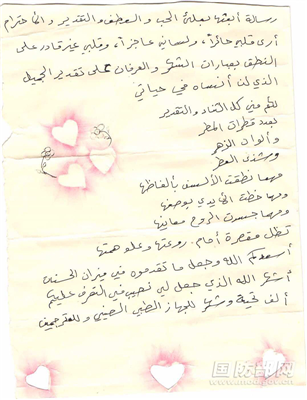 رسالة أبعثها بعبارة الحب والعطف والتقدير والاحترام
أرى قلبي حائراً، ولساني عاجزاً، وقلبي غير قادر على
النطق بعبارات الشكر والعرفان على تقدير الجميل
الذي لن أنساه في حياتي
لكم مني كل الثناء والتقدير
بعدد قطرات المطر
وألوان الزهر
وشذى العطر
مهما نطقت الألسن بألفاظها
ومهما خطت الأيدي بوصفها
ومهما جسدت الروح معانيها
تظل مقصرة أمام روعتها وعلو همتها
أسعدكم الله وجعل ما تقدموه في ميزان الحسنات
أشكر الله الذي جعل لي نصيب في التعرف عليكم
ألف تحية وشكر للجهاز الطبي الصيني والمترجمين
国防部网
www.mod.gov.cn